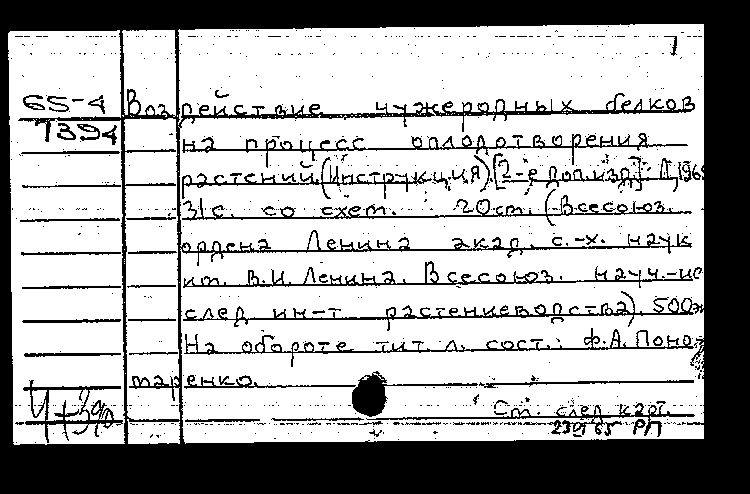 1
65-4 Воздействие чужеродных белков
7394 на процесс оплодотворения
растений. (Инструкция). [2-е доп. изд.]. Л, 196
31 с. со схем. 20 см. (Всесоюз.
ордена Ленина акад. с.-х. наук
им. В.И. Ленина. Всесоюз. науч.-ис
след ин-т растениеводства). 500
На обороте тит. л. сост.: Ф.А. Поно-
маренко.
См. след карт.
65 РП